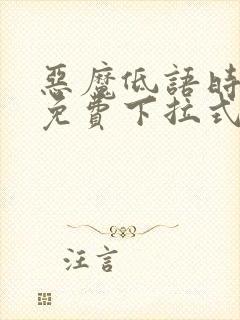 惡魔低語時
免費下拉式
汪言